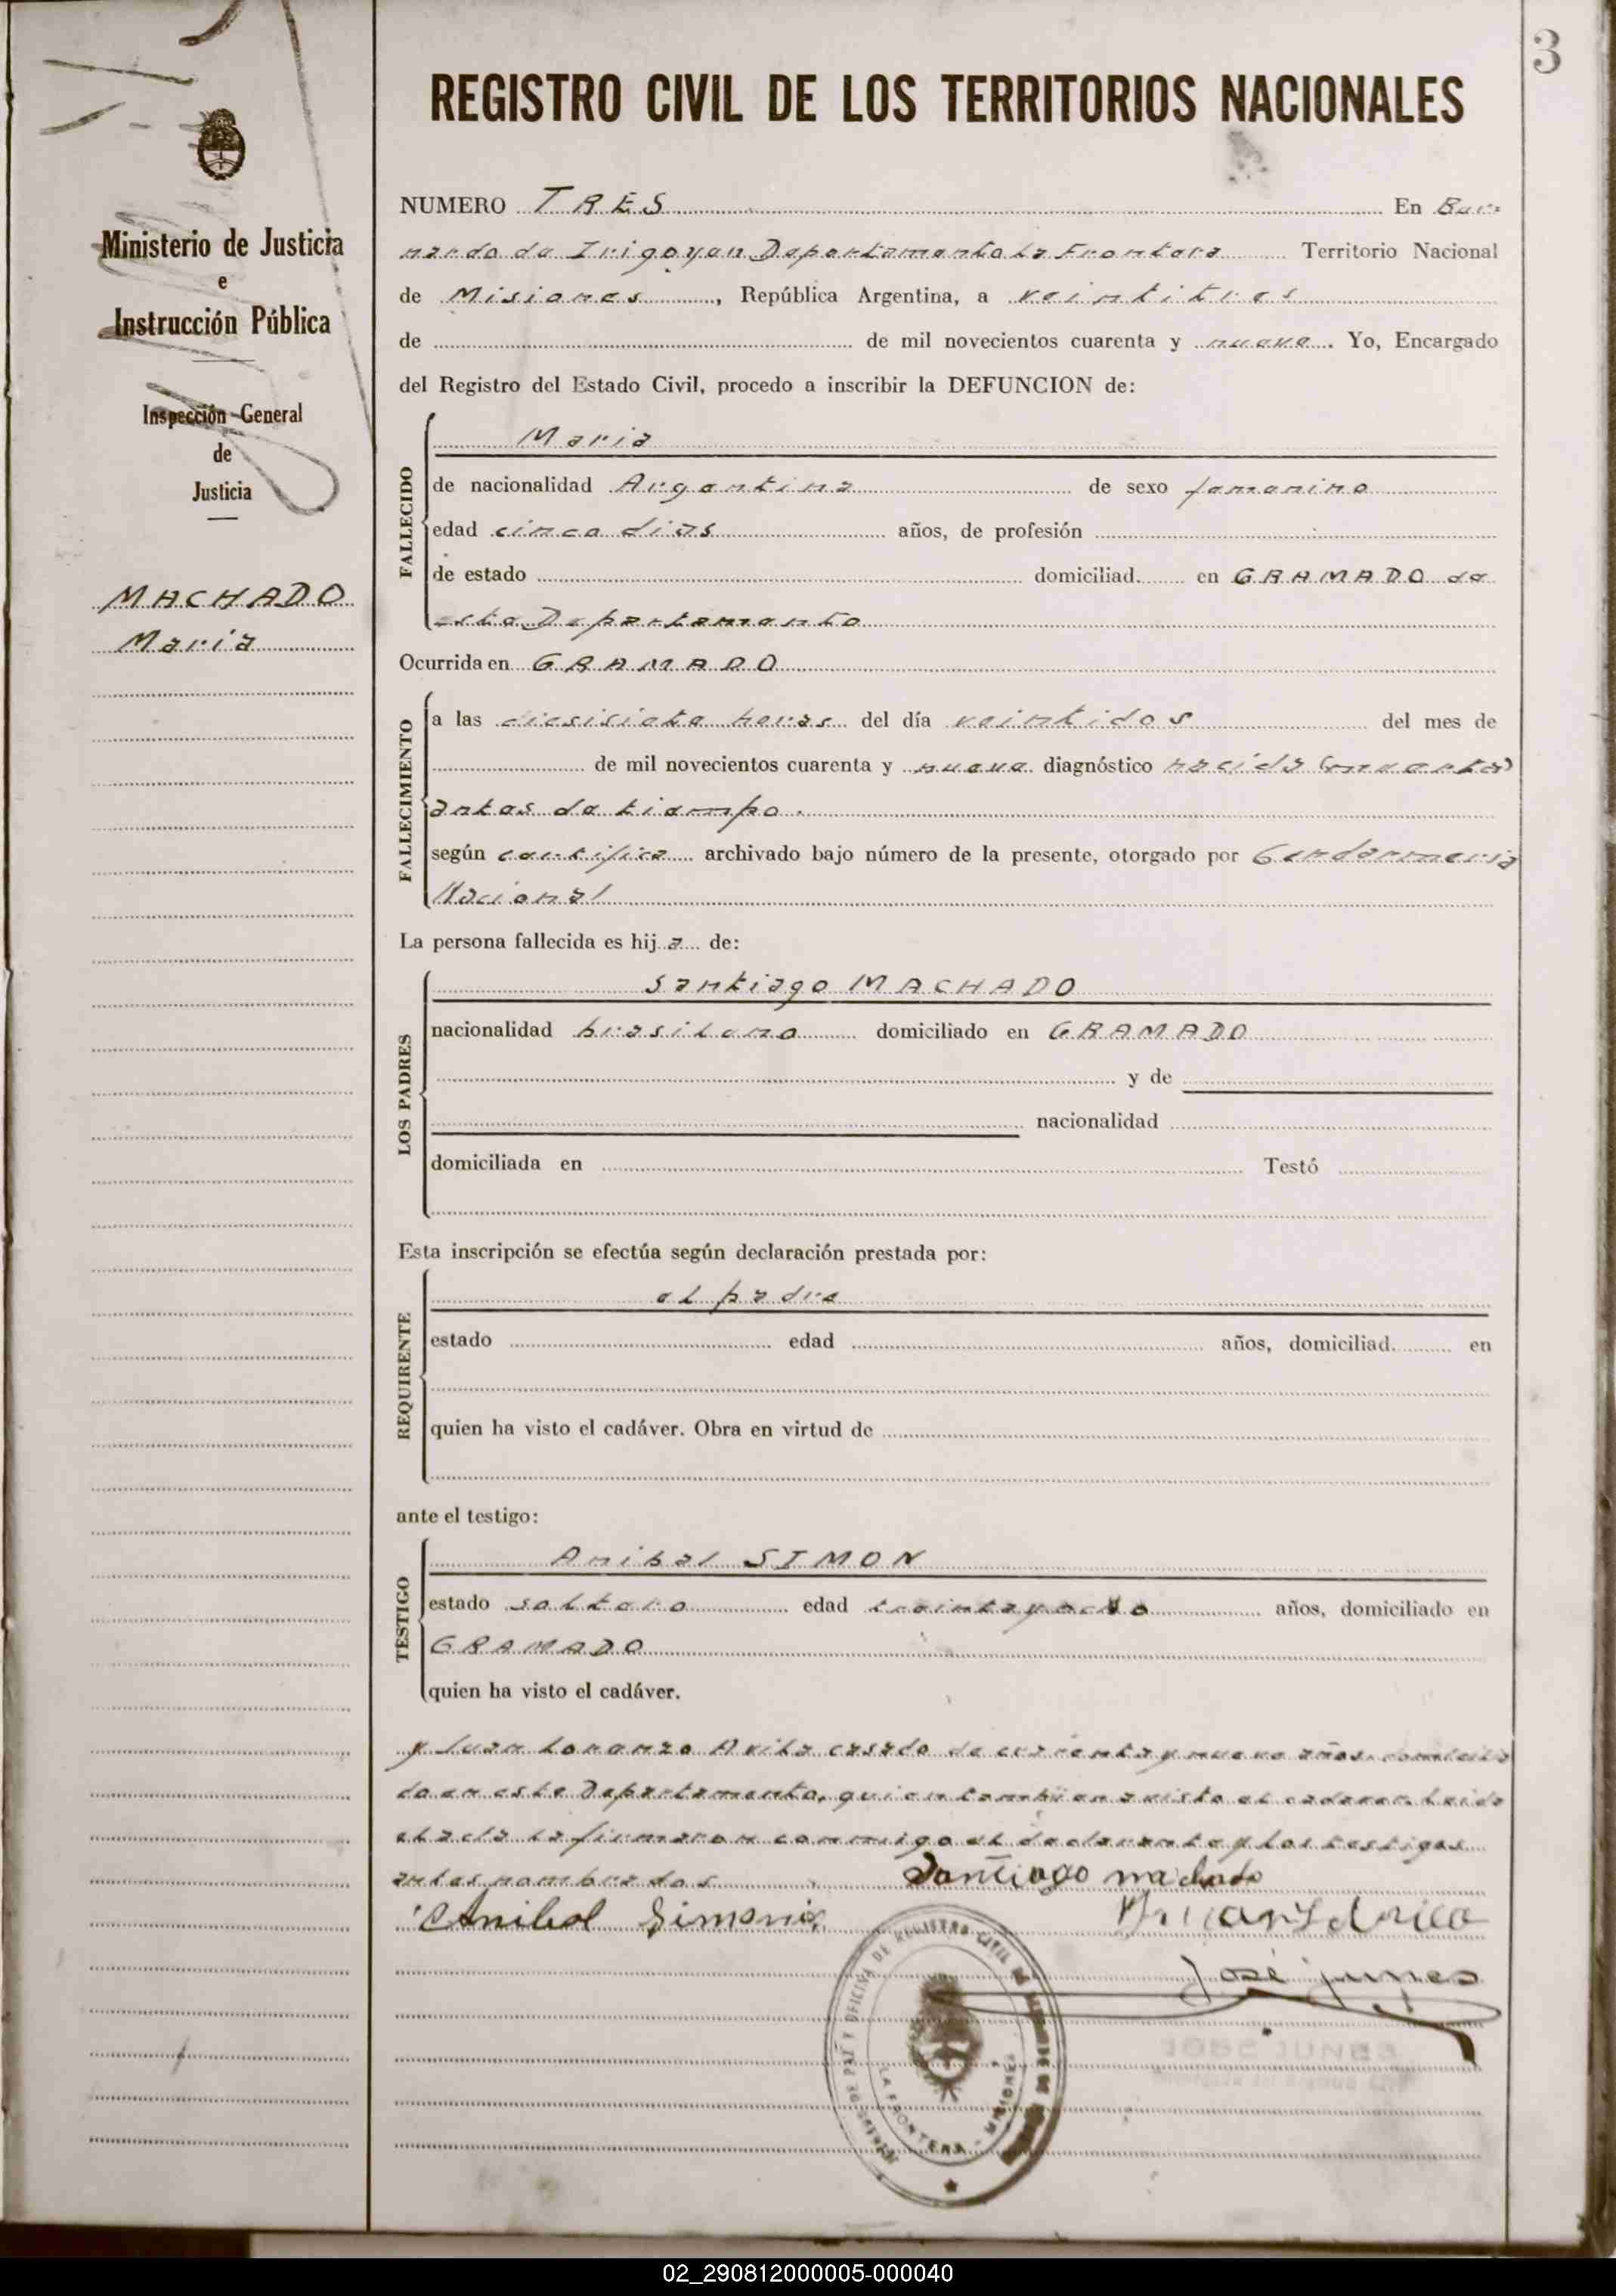 3
REGISTRO CIVIL DE LOS TERRITORIOS NACIONALES
Ministerio de Justicia
e
Instrucción Pública
Inspección General
de
Justicia
MACHADO
Maria
NUMERO TRES En Ber-
nardo de Irigoyen Departamento La Frontera Territorio Nacional
de Misiones, República Argentina, a veintitres
de de mil novecientos cuarenta y nueve. Yo, Encargado
del Registro del Estado Civil, procedo a inscribir la DEFUNCION de:
FALLECIDO
Maria
de nacionalidad Argentina de sexo femenino
edad cinco dias años, de profesión
de estado domiciliad. en GRAMADO de
este Departamento
Ocurrida en GRAMADO
FALLECIMIENTO
a las diesisiete horas del día veintidos del mes de
de mil novecientos cuarenta y nueve diagnóstico nacida
antes de tiempo.
según certifica archivado bajo número de la presente, otorgado por Gendarmeria
Nacional
La persona fallecida es hija de:
LOS PADRES
Santiago MACHADO
nacionalidad brasilero domiciliado en GRAMADO
y de
nacionalidad
domiciliada en Testó
Esta inscripción se efectúa según declaración prestada por:
REQUIRENTE
el padre
estado edad años, domiciliad. en
quien ha visto el cadáver. Obra en virtud de
ante el testigo:
TESTIGO
Anibal SIMON
estado soltero edad treintayocho años, domiciliado en
GRAMADO
quien ha visto el cadáver.
y Juan Lorenzo Avila casado de cuarenta y nueve años, domicilia
do en este Departamento, quien tambien a visto el cadaver. Leida
el acta la firmaron conmigo el declarante y los testigos
antes nombrados
Santiago machado
Anibal Simon
José junes
OFICINA DE REGISTRO CIVIL
LA FRONTERA - MISIONES
JOSE JUNES
02_290812000005-000040